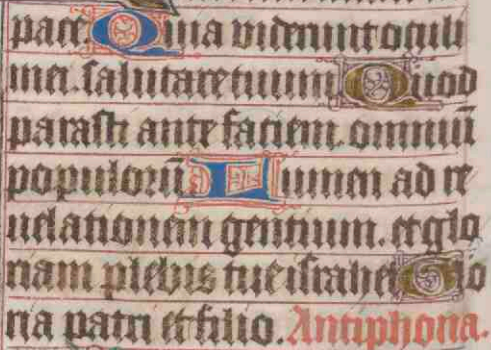 pace Quia viderunt oculi
mei. salutare tuum Quod
parasti ante faciem omniū
populorū Lumen ad re
uelationem gentium. et glo
riam plebis tue israhel Glo
ria patri et filio. Antiphona.